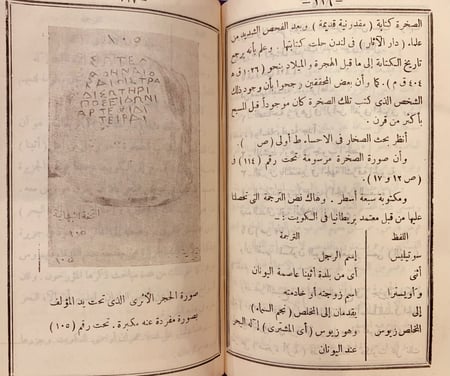 — ١١٦ —
الصخرة كتابة ( مقدونية قديمة ) وبعد الفحص الشديد من
علماء ( دار الآثار ) في لندن حلت كتابتها . وعلم بأنه يرجع
تاريخ الكتابة إلى ما قبل الهجرة و الميلاد بنحو
٤٠٤ ق م ) . كما وأن بعض المحققين رجحوا بأن وجود ذلك
الشخص الذي كتب تلك الصخرة كان موجوداً قبل المسيح
بأكثر من قرن .
أنظر بحث الصخار في الاحساء ط أولى ( ص ) .
وأن صورة الصخرة مرسومة تحت رقم ( ١١٤ ) في
( ص ١٢ و ١٧ ) .
ومكتوبة سبعة أسطر . وهاك نص الترجمة التي تحصلنا
عليها من قبل معتمد بريطانيا في الكويت : ــ
اللفظ الترجمة
سوتيليس إسم الرجل
أثنى أى من بلدة أثينا عاصمة اليونان
وأويسترا اسم زوجته أو خادمته
إلى يقدمان إلى المخلص ( نجم السماء )
المخلص زيوس وهو زيوس ( أى المشترى ) إله البحر
عند اليونان
١٠٥
ΣΩΤΕΛ
ΑΘΗΝΑΙΟ
ΚΑΙΠΙΣΤΡΑ
ΔΙΣΩΤΗΡΙ
ΠΟΣΕΙΔΩΝΙ
ΑΡΤΕΜΙΔΙ
ΤΕΙΡΑΙ
١٠٥
صورة الحجر الأثرى الذى تحت يد المؤلف
بصورة مفردة عنه مكبرة . تحت رقم ( ١٠٥ )